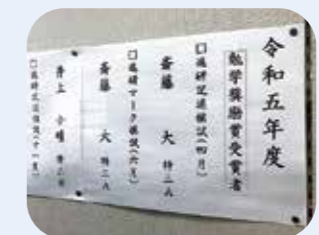 令和五年度
勉学奨励賞受賞者
□進研記述模試(四月)
斎藤 大 特二A
□進研マーク模試(六月)
斎藤 大 特二A
□進研記述模試(十一月)
井上 小晴